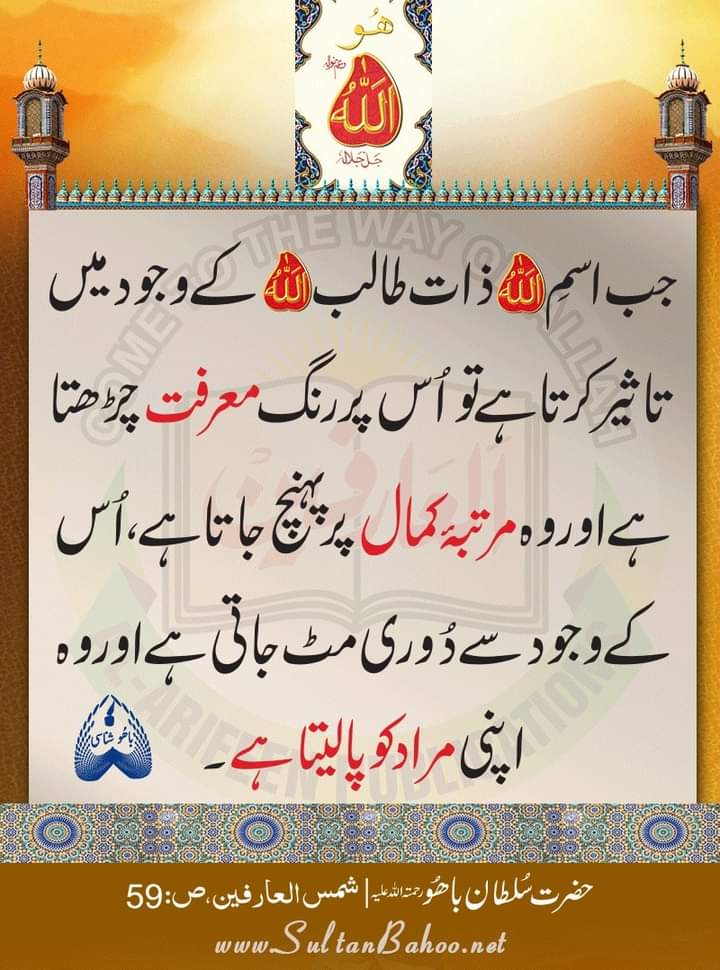 ھُو
اللہ
جل جلالہ
COME TO THE WAY OF ALLAH
جب اسمِ اللہ ذات طالب اللہ کے وجود میں
تاثیر کرتا ہے تو اُس پر رنگ معرفت چڑھتا
ہے اور وہ مرتبۂ کمال پر پہنچ جاتا ہے، اُس
کے وجود سے دُوری مٹ جاتی ہے اور وہ
اپنی مراد کو پا لیتا ہے۔
العارفین
AL-ARIFEEN PUBLICATIONS
باھُو شناسی
حضرت سُلطان باھُو رحمتہ اللہ علیہ | شمس العارفین، ص: 59
www.SultanBahoo.net